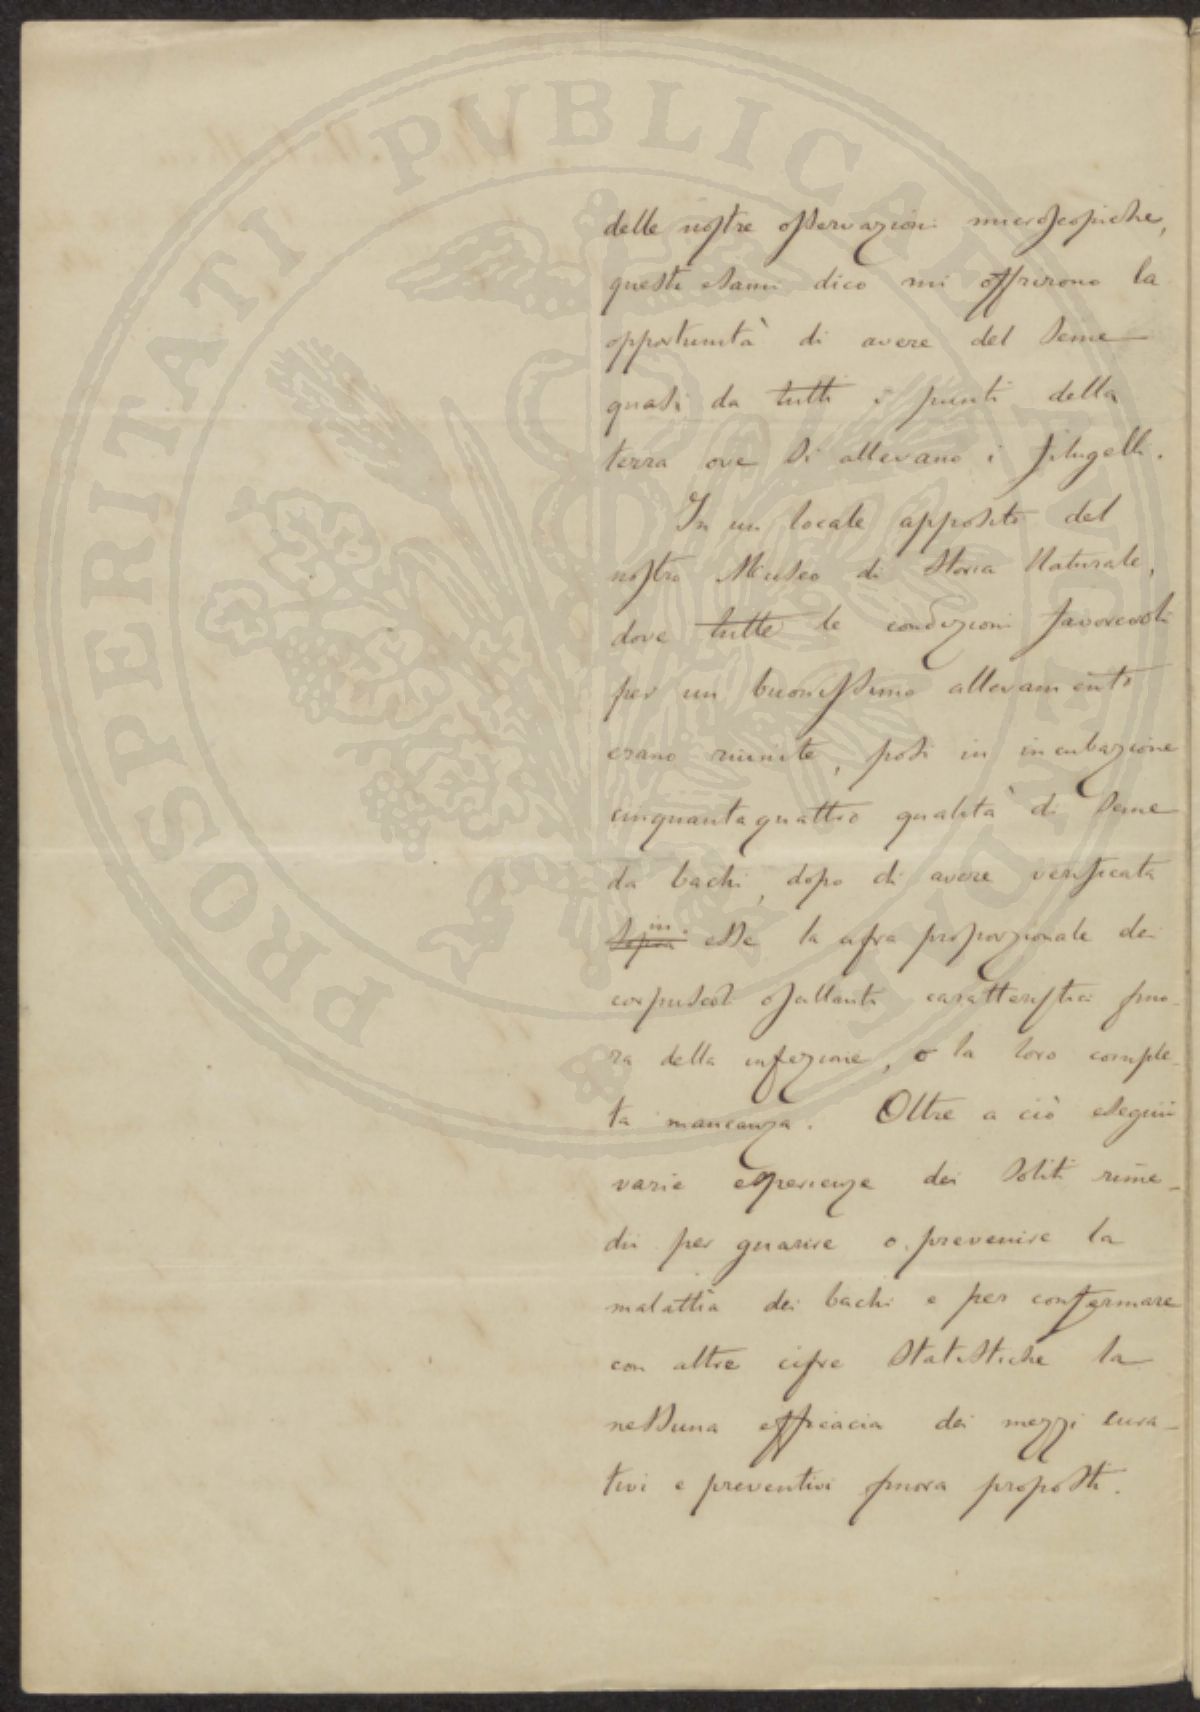 delle nostre osservazioni microscopiche,
questi esami dico mi offrirono la
opportunità di avere del seme
quasi da tutti i punti della
terra ove si allevano i filugelli.
In un locale apposito del
nostro Museo di Storia Naturale,
dove tutte le condizioni favorevoli
per un buonissimo allevamento
erano riunite, posi in incubazione
cinquantaquattro qualità di seme
da bachi, dopo di avere verificata
in
sopra esse la cifra proporzionale dei
corpuscoli oscillanti caratteristici fino-
ra della infezione, o la loro comple-
ta mancanza. Oltre a ciò eseguii
varie esperienze dei soliti rime-
dii per guarire o prevenire la
malattia dei bachi e per confermare
con altre cifre statistiche la
nessuna efficacia dei mezzi cura-
tivi e preventivi finora proposti.
PROSPERITATI PUBLICAE AUGENDAE